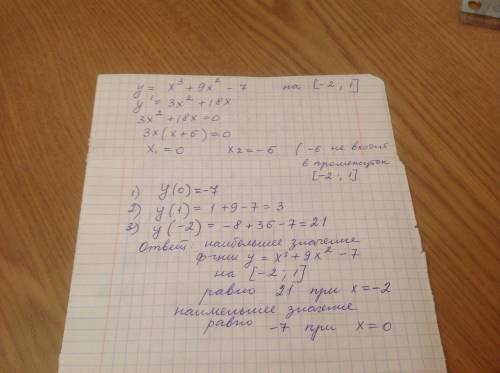 y = x³ + 9x² - 7 на [-2; 1]
y' = 3x² + 18x
3x² + 18x = 0
3x(x+6) = 0
x₁ = 0 x₂ = -6 (-6 не входит
в промежуток
[-2; 1]
1) y(0) = -7
2) y(1) = 1 + 9 - 7 = 3
3) y(-2) = -8 + 36 - 7 = 21
Ответ: наибольшее значение
ф-ции y = x³ + 9x² - 7
на [-2; 1]
равно 21 при x = -2
наименьшее значение
равно -7 при x = 0